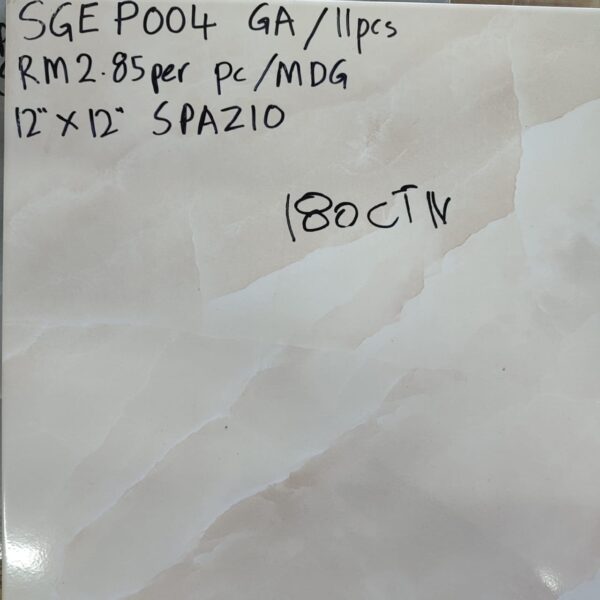 SGE P004 GA/11pcs
RM2.85per pc/MDG
12"x12" SPAZIO
180CTN